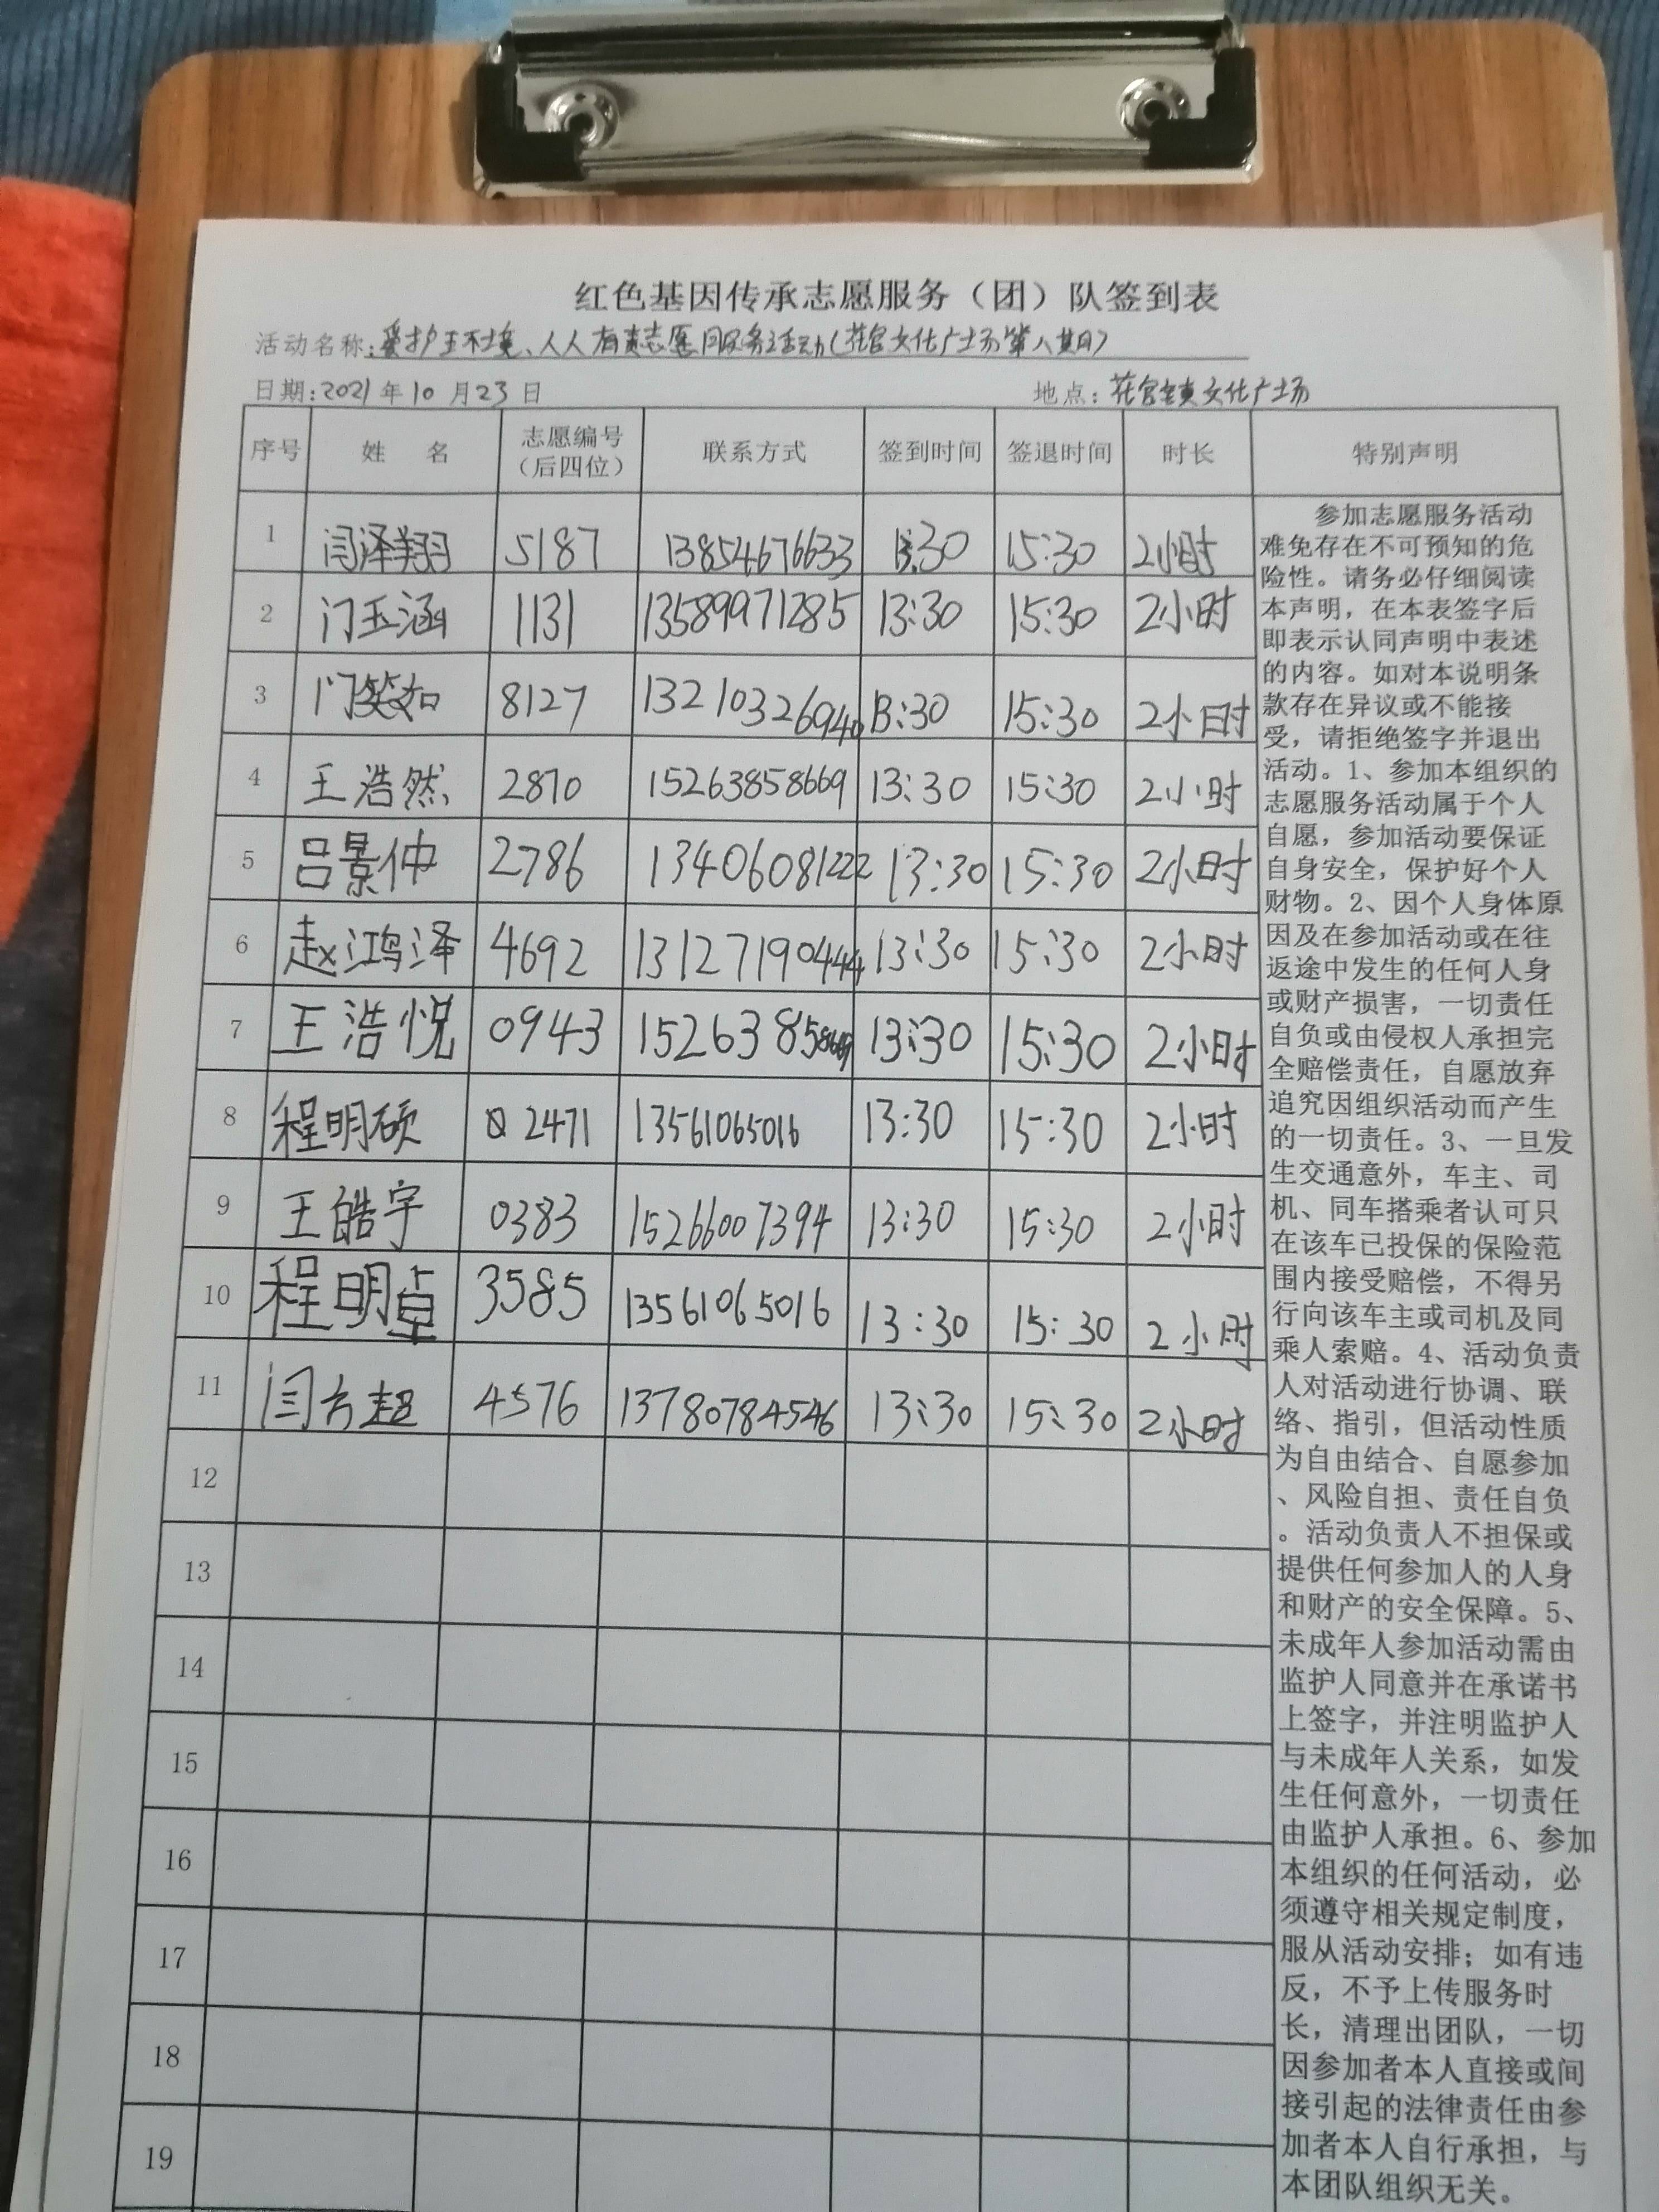 红色基因传承志愿服务（团）队签到表
活动名称:爱护环境、人人有责志愿服务活动(花官文化广场第八期)
日期:2021年10月23日 地点:花官镇文化广场
序号 姓 名 志愿编号（后四位） 联系方式 签到时间 签退时间 时长 特别声明
1 闫泽翔 5187 13854676633 13:30 15:30 2小时
2 门玉涵 1131 13589971285 13:30 15:30 2小时
3 门笑如 8127 13210326940 13:30 15:30 2小时
4 王浩然 2870 15263858669 13:30 15:30 2小时
5 吕景仲 2786 13406081222 13:30 15:30 2小时
6 赵鸿泽 4692 13127190444 13:30 15:30 2小时
7 王浩悦 0943 15263858669 13:30 15:30 2小时
8 程明硕 2471 13561065016 13:30 15:30 2小时
9 王皓宇 0383 15266007394 13:30 15:30 2小时
10 程明卓 3585 13561065016 13:30 15:30 2小时
11 闫方超 4576 13780784546 13:30 15:30 2小时
12
13
14
15
16
17
18
19
参加志愿服务活动
难免存在不可预知的危
险性。请务必仔细阅读
本声明，在本表签字后
即表示认同声明中表述
的内容。如对本说明条
款存在异议或不能接
受，请拒绝签字并退出
活动。1、参加本组织的
志愿服务活动属于个人
自愿，参加活动要保证
自身安全，保护好个人
财物。2、因个人身体原
因及在参加活动或在往
返途中发生的任何人身
或财产损害，一切责任
自负或由侵权人承担完
全赔偿责任，自愿放弃
追究因组织活动而产生
的一切责任。3、一旦发
生交通意外，车主、司
机、同车搭乘者认可只
在该车已投保的保险范
围内接受赔偿，不得另
行向该车主或司机及同
乘人索赔。4、活动负责
人对活动进行协调、联
络、指引，但活动性质
为自由结合、自愿参加
、风险自担、责任自负
。活动负责人不担保或
提供任何参加人的人身
和财产的安全保障。5、
未成年人参加活动需由
监护人同意并在承诺书
上签字，并注明监护人
与未成年人关系，如发
生任何意外，一切责任
由监护人承担。6、参加
本组织的任何活动，必
须遵守相关规定制度，
服从活动安排；如有违
反，不予上传服务时
长，清理出团队，一切
因参加者本人直接或间
接引起的法律责任由参
加者本人自行承担，与
本团队组织无关。